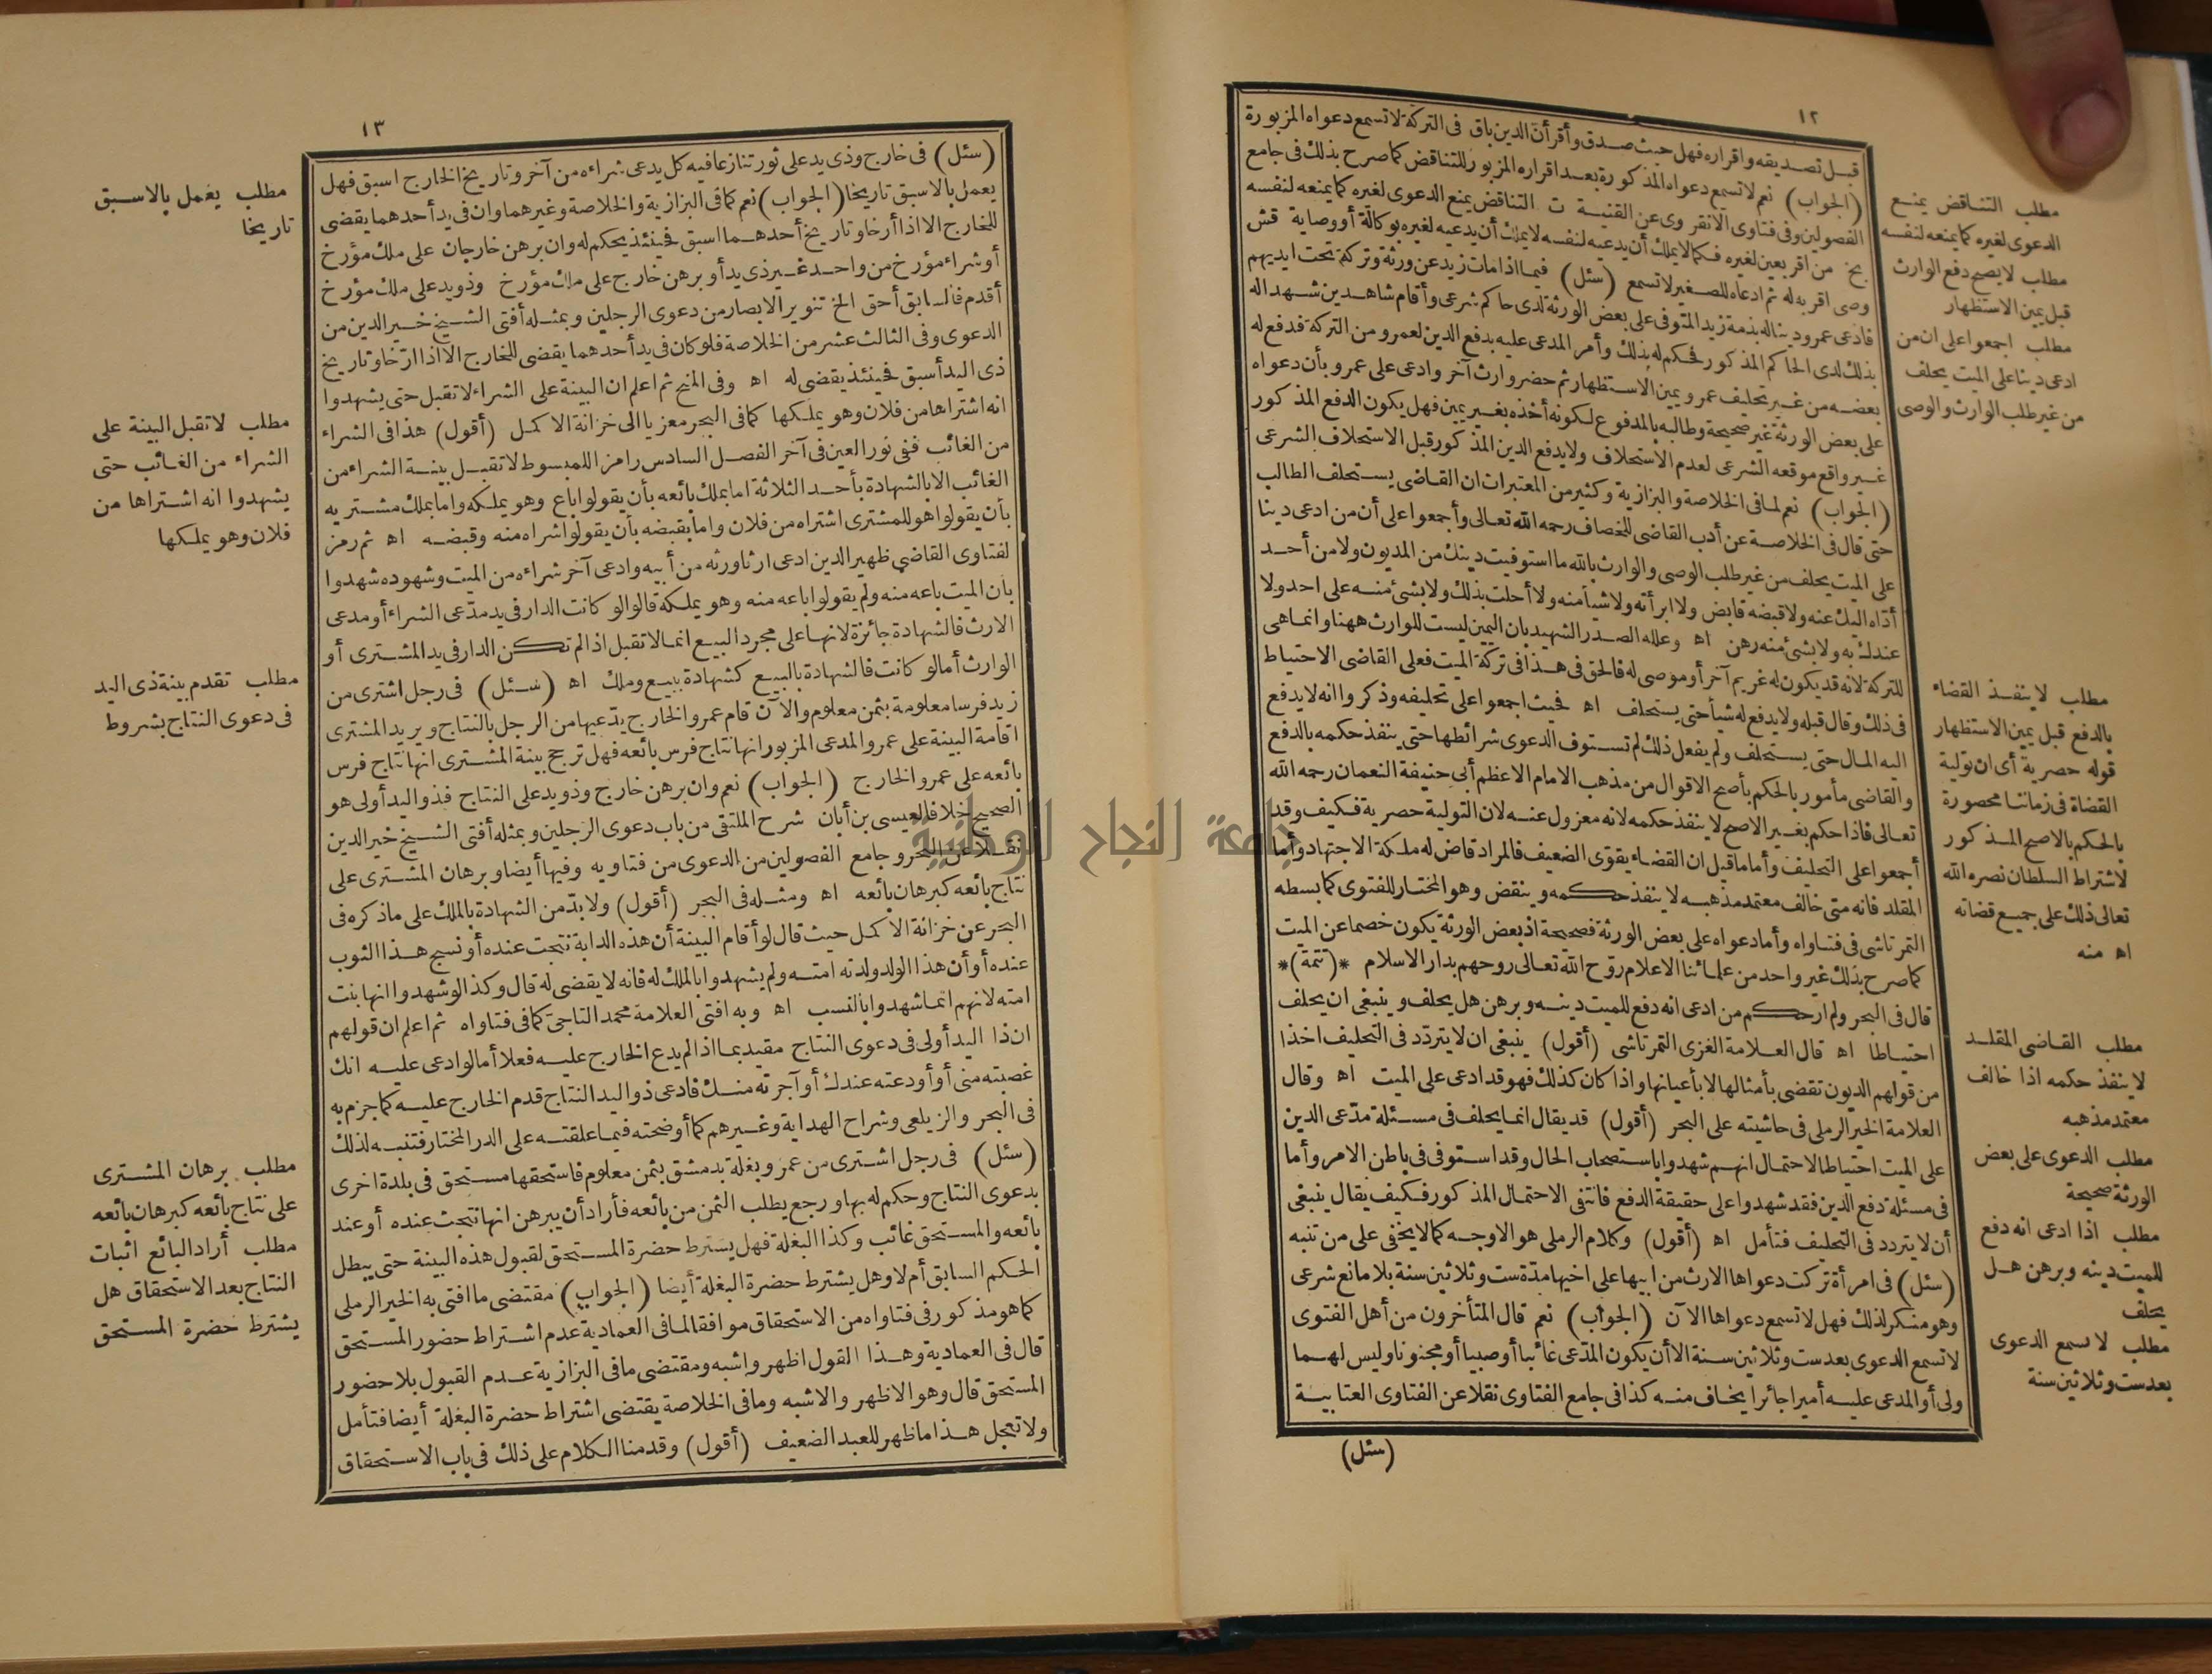 ١٢
قبل تصديقه واقراره فهل حيث صدق وأقر أن الدين باق فى التركة لا تسمع دعواه المزبورة
(الجواب) نعم لا تسمع دعواه المذكورة بعد اقراره المزبور للتناقض كما صرح بذلك فى جامع
الفصولين وفى فتاوى الانقروى عن القنية ت التناقض يمنع الدعوى لغيره كما يمنعه لنفسه
بخ من اقر بعين لغيره فكما لا يملك أن يدعيه لنفسه لا يملك أن يدعيه لغيره بوكالة أو وصاية قش
وصى اقر به له ثم ادعاه للصغير لا تسمع (سئل) فيما اذا مات زيد عن ورثة وتركة تحت ايديهم
فادعى عمرو دينا له بذمة زيد المتوفى على بعض الورثة لدى حاكم شرعى وأقام شاهدين شهدا له
بذلك لدى الحاكم المذكور فحكم له بذلك وأمر المدعى عليه بدفع الدين لعمرو من التركة فدفع له
بعضه من غير تحليف عمرو يمين الاستظهار ثم حضر وارث آخر وادعى على عمرو بأن دعواه
على بعض الورثة غير صحيحة وطالبه بالمدفوع لكونه أخذه بغير يمين فهل يكون الدفع المذكور
غير واقع موقعه الشرعى لعدم الاستحلاف ولا يدفع الدين المذكور قبل الاستحلاف الشرعى
(الجواب) نعم لما فى الخلاصة والبزازية وكثير من المعتبرات ان القاضى يستحلف الطالب
حتى قال فى الخلاصة عن أدب القاضى للخصاف رحمه الله تعالى وأجمعوا على أن من ادعى دينا
على الميت يحلف من غير طلب الوصى والوارث بالله ما استوفيت دينك من المديون ولا من أحد
أداه اليك عنه ولا قبضه قابض ولا ابرأته ولا شيأ منه ولا أحلت بذلك ولا بشئ منه على احد ولا
عندك به ولا بشئ منه رهن اه وعلله الصدر الشهيد بان اليمين ليست للوارث ههنا وانما هى
للتركة لانه قد يكون له غريم آخر أو موصى له فالحق فى هذا فى تركة الميت فعلى القاضى الاحتياط
فى ذلك وقال قبله ولا يدفع له شيأ حتى يستحلف اه فحيث اجمعوا على تحليفه وذكروا انه لا يدفع
اليه المال حتى يستحلف ولم يفعل ذلك لم تستوف الدعوى شرائطها حتى ينفذ حكمه بالدفع
والقاضى مأمور بالحكم بأصح الاقوال من مذهب الامام الاعظم أبى حنيفة النعمان رحمه الله
تعالى فاذا حكم بغير الاصح لا ينفذ حكمه لانه معزول عنه لان التولية حصرية فكيف وقد
أجمعوا على التحليف وأما ما قيل ان القضاء يقوى الضعيف فالمراد قاض له ملكة الاجتهاد وأما
المقلد فانه متى خالف معتمد مذهبه لا ينفذ حكمه وينقض وهو المختار للفتوى كما بسطه
التمرتاشى فى فتاواه وأما دعواه على بعض الورثة فصحيحة اذ بعض الورثة يكون خصما عن الميت
كما صرح بذلك غير واحد من علمائنا الاعلام روّح الله تعالى روحهم بدار الاسلام *(تتمة)*
قال فى البحر ولم ار حكم من ادعى انه دفع للميت دينه وبرهن هل يحلف وينبغى ان يحلف
احتياطا اه قال العلامة الغزى التمرتاشى (أقول) ينبغى ان لا يتردّد فى التحليف اخذا
من قولهم الديون تقضى بأمثالها لا بأعيانها واذا كان كذلك فهو قد ادعى على الميت اه وقال
العلامة الخير الرملى فى حاشيته على البحر (أقول) قد يقال انما يحلف فى مسئلة مدّعى الدين
على الميت احتياطا لاحتمال انهم شهدوا باستصحاب الحال وقد استوفى فى باطن الامر وأما
فى مسئلة دفع الدين فقد شهدوا على حقيقة الدفع فانتفى الاحتمال المذكور فكيف يقال ينبغى
أن لا يتردد فى التحليف فتأمل اه (أقول) وكلام الرملى هو الاوجه كما لا يخفى على من تنبه
(سئل) فى امرأة تركت دعواها الارث من ابيها على اخيها مدّة ست وثلاثين سنة بلا مانع شرعى
وهو منكر لذلك فهل لا تسمع دعواها الآن (الجواب) نعم قال المتأخرون من أهل الفتوى
لا تسمع الدعوى بعد ست وثلاثين سنة الا أن يكون المدّعى غائبا أو صبيا أو مجنونا وليس لهما
ولى أو المدعى عليه أميرا جائرا يخاف منه كذا فى جامع الفتاوى نقلا عن الفتاوى العتابية
(سئل)
مطلب التناقض يمنع
الدعوى لغيره كما يمنعه لنفسه
مطلب لا يصح دفع الوارث
قبل يمين الاستظهار
مطلب اجمعوا على ان من
ادعى دينا على الميت يحلف
من غير طلب الوارث والوصى
مطلب لا ينفذ القضاء
بالدفع قبل يمين الاستظهار
قوله حصرية أى ان تولية
القضاة فى زماننا محصورة
بالحكم بالاصح المذكور
لاشتراط السلطان نصره الله
تعالى ذلك على جميع قضاته
اه منه
مطلب القاضى المقلد
لا ينفذ حكمه اذا خالف
معتمد مذهبه
مطلب الدعوى على بعض
الورثة صحيحة
مطلب اذا ادعى انه دفع
للميت دينه وبرهن هل
يحلف
مطلب لا تسمع الدعوى
بعد ست وثلاثين سنة
١٣
(سئل) فى خارج وذى يد على ثور تنازعا فيه كل يدعى شراءه من آخر وتاريخ الخارج اسبق فهل
يعمل بالاسبق تاريخا (الجواب) نعم كما فى البزازية والخلاصة وغيرهما وان فى يد أحدهما يقضى
للخارج الا اذا أرخا وتاريخ أحدهما اسبق فحينئذ يحكم له وان برهن خارجان على ملك مؤرخ
أو شراء مؤرخ من واحد غير ذى يد أو برهن خارج على ملك مؤرخ وذو يد على ملك مؤرخ
أقدم فالسابق أحق الخ تنوير الابصار من دعوى الرجلين وبمثله أفتى الشيخ خير الدين من
الدعوى وفى الثالث عشر من الخلاصة فلو كان فى يد أحدهما يقضى للخارج الا اذا ارّخا وتاريخ
ذى اليد أسبق فحينئذ يقضى له اه وفى المنح ثم اعلم ان البينة على الشراء لا تقبل حتى يشهدوا
انه اشتراها من فلان وهو يملكها كما فى البحر معزيا الى خزانة الاكمل (أقول) هذا فى الشراء
من الغائب ففى نور العين فى آخر الفصل السادس رامزا للمبسوط لا تقبل بينة الشراء من
الغائب الا بالشهادة بأحد الثلاثة اما بملك بائعه بأن يقولوا باع وهو يملكه واما بملك مشتريه
بأن يقولوا هو للمشترى اشتراه من فلان واما بقبضه بأن يقولوا شراه منه وقبضه اه ثم رمز
لفتاوى القاضى ظهير الدين ادعى ارثا ورثه من أبيه وادعى آخر شراءه من الميت وشهوده شهدوا
بأن الميت باعه منه ولم يقولوا باعه منه وهو يملكه قالوا لو كانت الدار فى يد مدّعى الشراء أو مدعى
الارث فالشهادة جائزة لانها على مجرد البيع انما لا تقبل اذا لم تكن الدار فى يد المشترى أو
الوارث أما لو كانت فالشهادة بالبيع كشهادة ببيع وملك اه (سئل) فى رجل اشترى من
زيد فرسا معلومة بثمن معلوم والآن قام عمرو الخارج يدّعيها من الرجل بالنتاج ويريد المشترى
اقامة البينة على عمرو المدعى المزبور انها نتاج فرس بائعه فهل ترجح بينة المشترى انها نتاج فرس
بائعه على عمرو الخارج (الجواب) نعم وان برهن خارج وذو يد على النتاج فذو اليد أولى هو
الصحيح خلافا لعيسى بن أبان شرح الملتقى من باب دعوى الرجلين وبمثله أفتى الشيخ خير الدين
نقلا عن البحر وجامع الفصولين من الدعوى من فتاويه وفيها أيضا وبرهان المشترى على
نتاج بائعه كبرهان بائعه اه ومثله فى البحر (أقول) ولا بدّ من الشهادة بالملك على ما ذكره فى
البحر عن خزانة الاكمل حيث قال لو أقام البينة أن هذه الدابة نتجت عنده أو نسج هذا الثوب
عنده أو أن هذا الولد ولدته امته ولم يشهدوا بالملك له فانه لا يقضى له قال وكذا لو شهدوا انها بنت
امته لانهم انما شهدوا بالنسب اه وبه افتى العلامة محمد التاجى كما فى فتاواه ثم اعلم ان قولهم
ان ذا اليد أولى فى دعوى النتاج مقيد بما اذا لم يدع الخارج عليه فعلا أما لو ادعى عليه انك
غصبته منى أو أودعته عندك أو آجرته منك فادعى ذو اليد النتاج قدم الخارج عليه كما جزم به
فى البحر والزيلعى وشراح الهداية وغيرهم كما أوضحته فيما علقته على الدر المختار فتنبه لذلك
(سئل) فى رجل اشترى من عمرو بغلة بدمشق بثمن معلوم فاستحقها مستحق فى بلدة اخرى
بدعوى النتاج وحكم له بها ورجع يطلب الثمن من بائعه فأراد أن يبرهن انها نتجت عنده أو عند
بائعه والمستحق غائب وكذا البغلة فهل يشترط حضرة المستحق لقبول هذه البينة حتى يبطل
الحكم السابق أم لا وهل يشترط حضرة البغلة أيضا (الجواب) مقتضى ما افتى به الخير الرملى
كما هو مذكور فى فتاواه من الاستحقاق موافقا لما فى العمادية عدم اشتراط حضور المستحق
قال فى العمادية وهذا القول اظهر واشبه ومقتضى ما فى البزازية عدم القبول بلا حضور
المستحق قال وهو الاظهر والاشبه وما فى الخلاصة يقتضى اشتراط حضرة البغلة أيضا فتأمل
ولا تعجل هذا ما ظهر للعبد الضعيف (أقول) وقدمنا الكلام على ذلك فى باب الاستحقاق
مطلب يعمل بالاسبق
تاريخا
مطلب لا تقبل البينة على
الشراء من الغائب حتى
يشهدوا انه اشتراها من
فلان وهو يملكها
مطلب تقدم بينة ذى اليد
فى دعوى النتاج بشروط
مطلب برهان المشترى
على نتاج بائعه كبرهان بائعه
مطلب أراد البائع اثبات
النتاج بعد الاستحقاق هل
يشترط حضرة المستحق
جامعة النجاح الوطنية